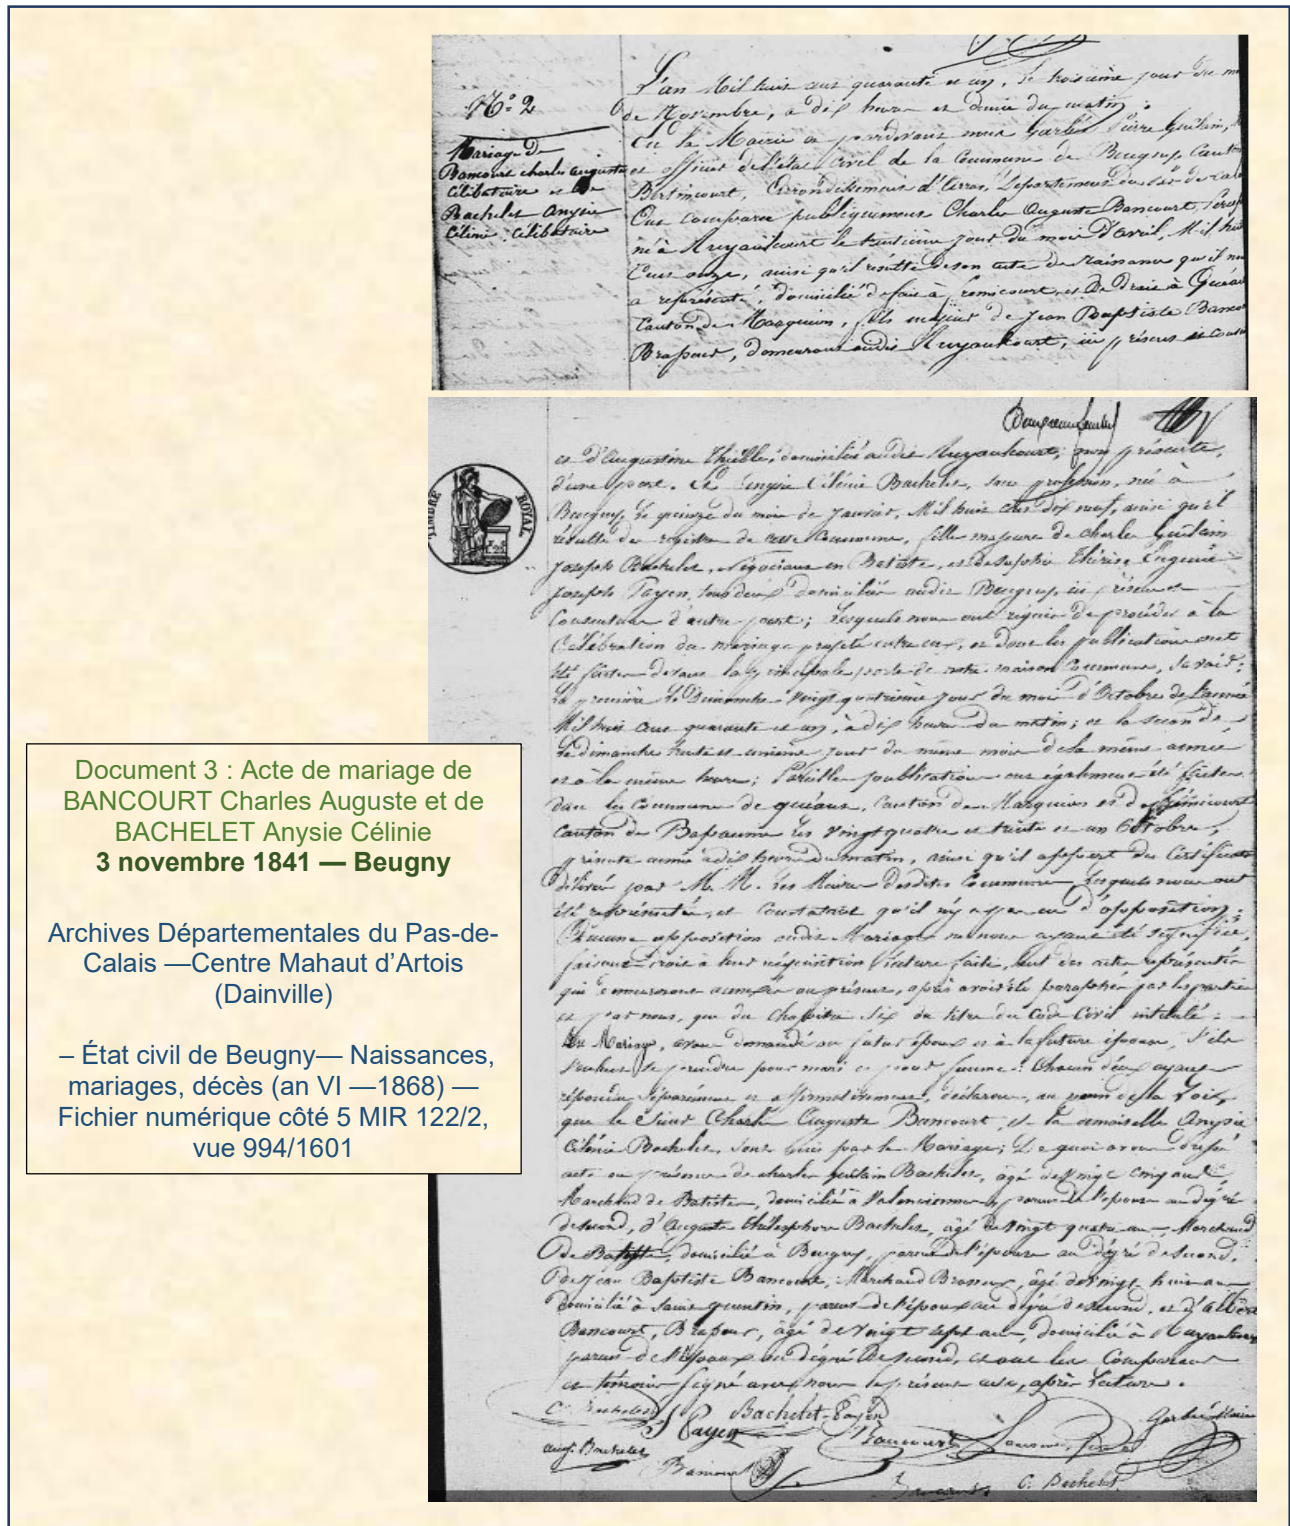 L'an Mil huit cent quarante et un, le troisième jour du m
N.º 2
de Novembre, à dix heures et demie du matin ;
En la Mairie et pardevant nous Garbé Pierre Guilain,
Mariage de
Bancourt charles auguste
célibataire et de
Bachelet Anysie
Célinie célibataire
et officier de l'état civil de la Commune de Beugny, Canton
Bertincourt, Arrondissement d'Arras, Département du Pas-de-Cala
Ont comparu publiquement Charles Auguste Bancourt,
né à Ruyaulcourt le trentième jour du mois d'avril, Mil huit
Cent onze, ainsi qu'il résulte de son acte de Naissance qu'il
a représenté, domicilié de fait à fremicourt, et de Droit à Quéan
Canton de Marquion, fils majeur de Jean Baptiste Banco
Brasseur, demeurant audit Ruyaulcourt, ici présent et cons
et d'Augustine Thieble, domiciliée audit Ruyaulcourt, présente,
d'une part. Et Anysie Célénie Bachelet, sans profession, née à
Beugny, le quinze du mois de Janvier, Mil huit cent dix neuf, ainsi qu'il
résulte du registre de cette Commune, fille majeure de charles Guilain
Joseph Bachelet, Négociant en Batiste, et de Thérèse Eugénie
Joseph Payen, tous deux domiciliés audit Beugny, ici présents et
Consentans d'autre part ; lesquels nous ont requis de procéder à la
Célébration du mariage projeté entre eux, et dont les publications ont
été faites devant la principale porte de notre maison Commune, Savoir :
La première le Dimanche Vingt quatrième jour du mois d'Octobre de l'année
Mil huit cent quarante et un, à dix heures du matin ; et la seconde
le dimanche trente et unième jour du même mois de la même année
et à la même heure ; Pareilles publications ont également été faites
dans les Communes de quéant, Canton de Marquion et de frémicourt
Canton de Bapaume les Vingt quatre et trente et un Octobre,
présente année à dix heures du matin, ainsi qu'il appert des Certificats
délivrés par M.M. les Maires desdites Communes, lesquels nous ont
été représentés, et Constatant qu'il n'y a pas eu d'opposition.
Aucune opposition audit Mariage ne nous ayant été signifiée,
faisant droit à leur réquisition lecture faite, tant des actes représentés
qui demeureront annexés au présent, après avoir été paraphés par les parties
et par nous, que du Chapitre Six du titre du Code Civil intitulé :
du Mariage, avons demandé au futur époux et à la future épouse, S'ils
veulent se prendre pour mari et pour femme : Chacun d'eux ayant
répondu Séparément et affirmativement, déclarons, au nom de la Loi,
que le Sieur Charles Auguste Bancourt, et la demoiselle Anysie
Célénie Bachelet, sont unis par le Mariage ; De quoi avons dressé
acte en présence de charles Guilain Bachelet, âgé de Vingt cinq ans,
Marchand de Batiste, domicilié à Valenciennes, parent de l'épouse au dégré
de second, d'Auguste Thélesphore Bachelet, âgé de vingt quatre ans, Marchand
de Batiste, domicilié à Beugny, parent de l'épouse au dégré de second,
de Jean Baptiste Bancourt, Marchand Brasseur, âgé de vingt huit ans
domicilié à Saint quentin, parent de l'époux au dégré de second, et d'
Bancourt, Brasseur, âgé de Vingt sept ans, domicilié à Ruyaulcourt
parent de l'époux au dégré de second, et ont les Comparants
et témoins signé avec nous le présent acte, après lecture.
C. Bachelet
Bachelet-Payen
Garbé Maire
Payen
Bancourt
aug. Bachelet
Bancourt
Bancourt
C. Bachelet
TIMBRE ROYAL
Document 3 : Acte de mariage de
BANCOURT Charles Auguste et de
BACHELET Anysie Célinie
3 novembre 1841 — Beugny
Archives Départementales du Pas-de-
Calais —Centre Mahaut d'Artois
(Dainville)
– État civil de Beugny— Naissances,
mariages, décès (an VI —1868) —
Fichier numérique côté 5 MIR 122/2,
vue 994/1601